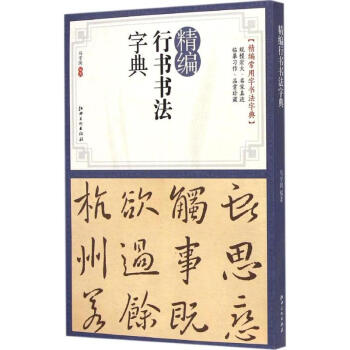 精编
行书书法
字典
【精编常用字书法字典】
规模宏大·名家真迹
临摹习作·品赏珍藏
杭州
欲過餘
觸事既
思戀
精编行书书法字典